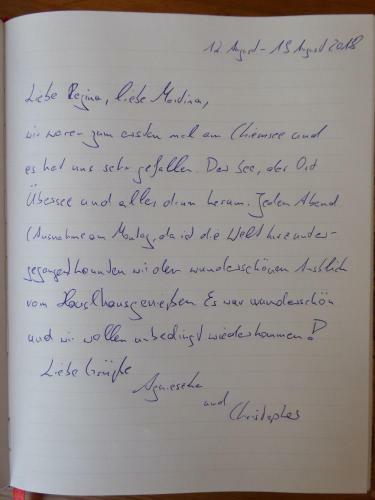 12 August - 19 August 2018
Liebe Regina, liebe Martina,
wir waren zum ersten mal am Chiemsee und
es hat uns sehr gefallen. Der See, der Ort
Übersee und alles drum herum. Jeden Abend
(Ausnahme am Montag, da ist die Welt hier unter-
gegangen) konnten wir den wunderschönen Ausblick
vom Haus genießen. Es war wunderschön
und wir wollen unbedingt wiederkommen!
Liebe Grüße
Agnieszka
und
Christopher